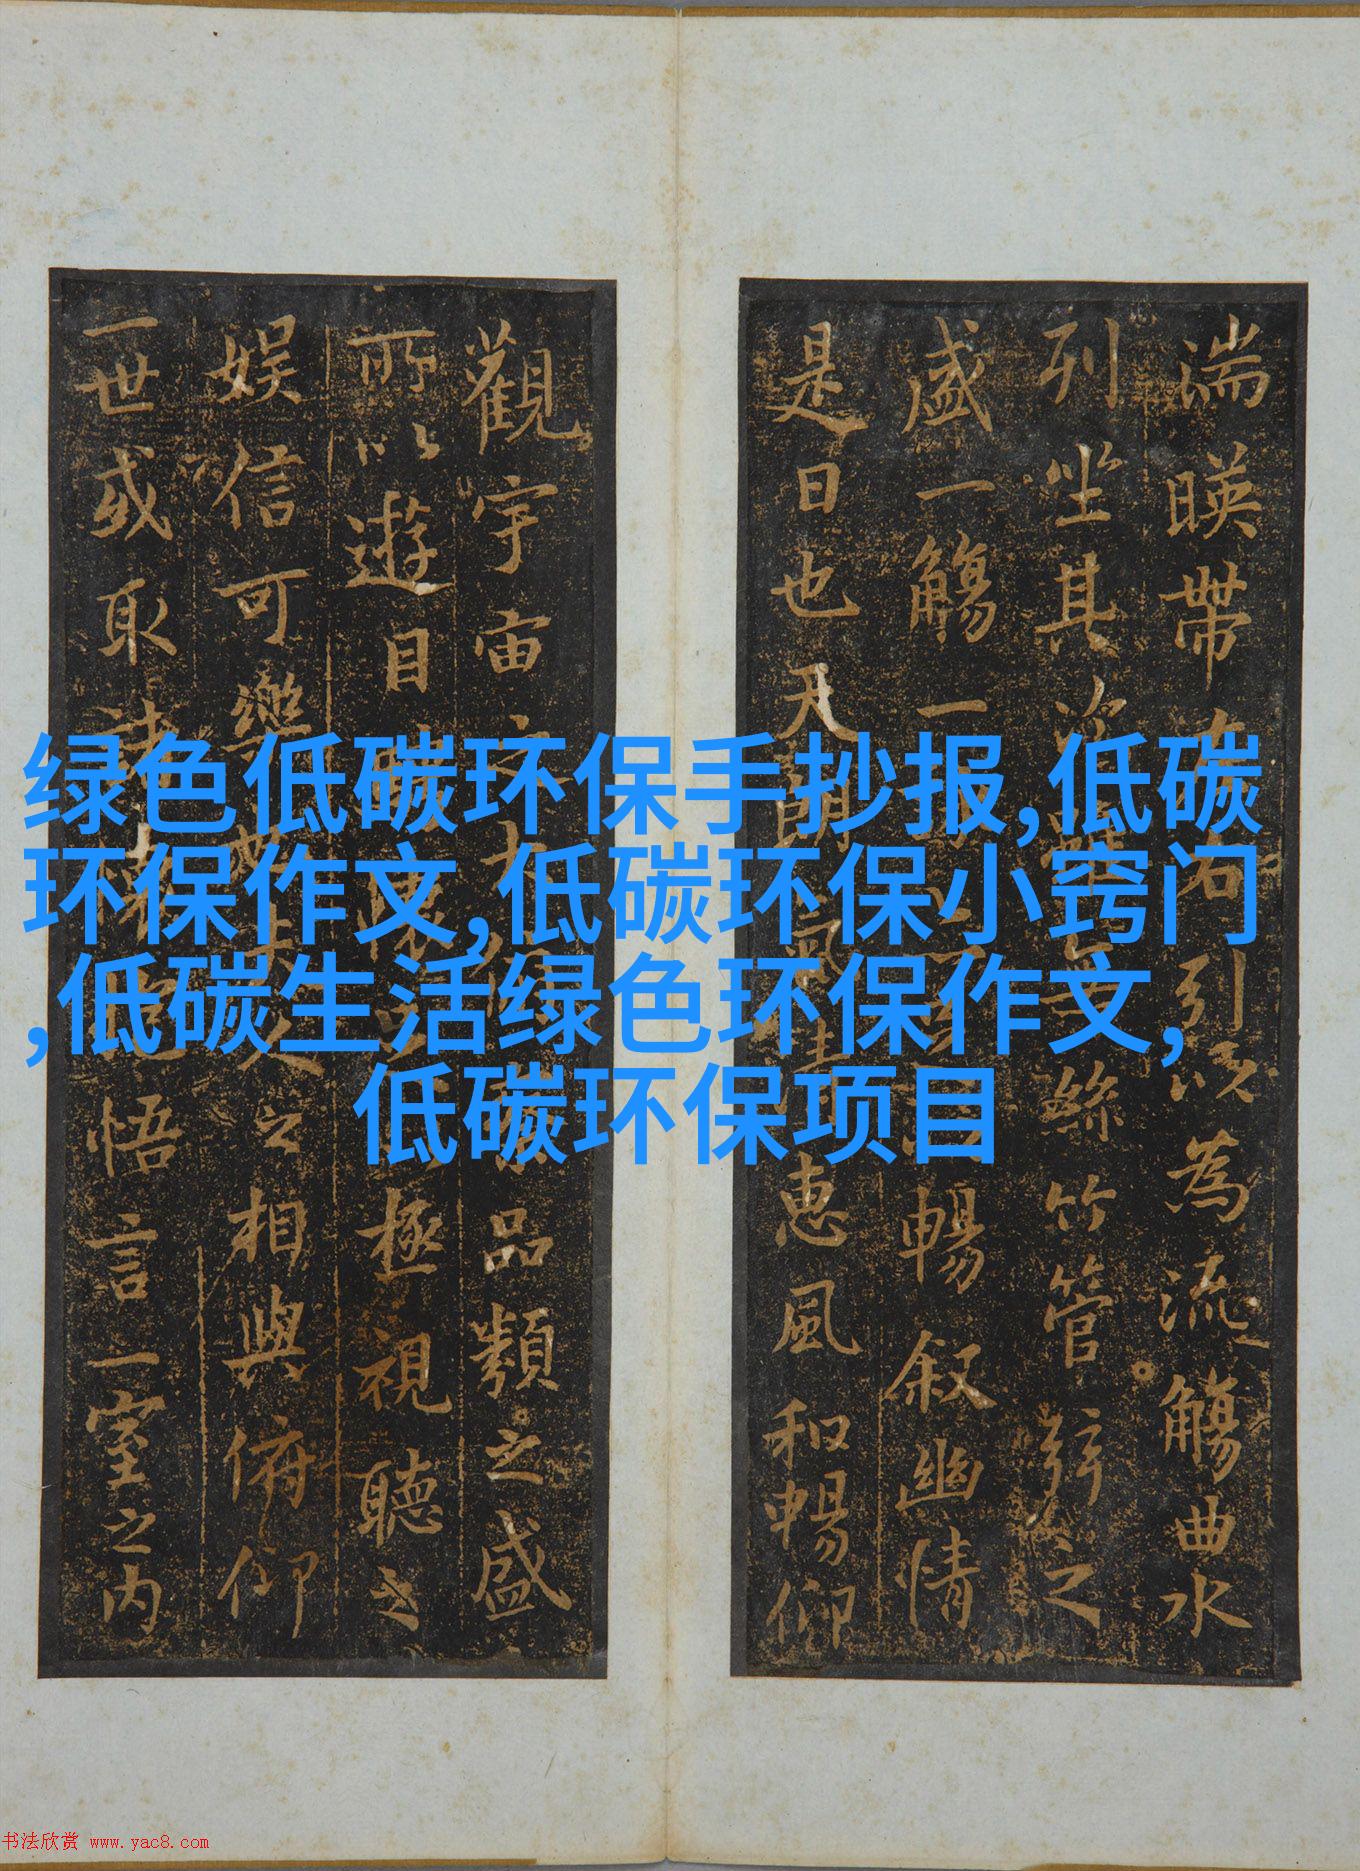 湍暎帶左右引以為流觴曲水
列坐其次雖無絲竹管弦之
盛一觴一詠亦足以暢叙幽情
是日也天朗氣清惠風和暢仰
觀宇宙之大俯察品類之盛
所以遊目騁懷足以極視聽之
娱信可樂也夫人之相與俯仰
一世或取諸懷抱悟言一室之内
绿色低碳环保手抄报,低碳
环保作文,低碳环保小窍门
,低碳生活绿色环保作文,
低碳环保项目
书法欣赏 www.yac8.com